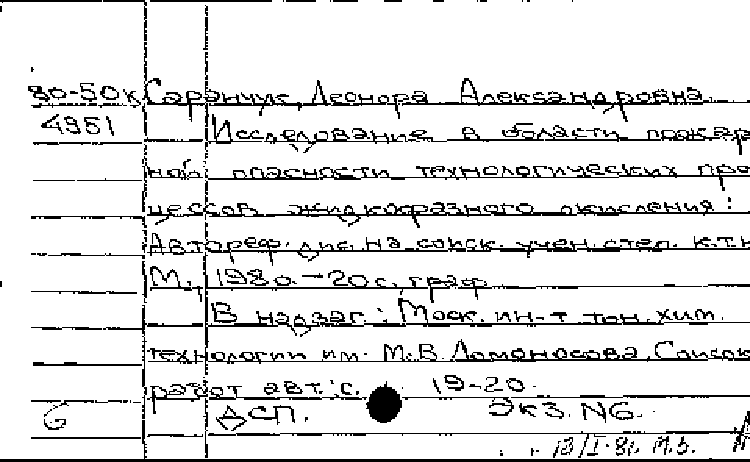 80-50к Саранчук, Леонора Александровна
4951 Исследование в области пожар
ной опасности технологических про
цессов жидкофазного окисления:
Автореф. дис. на соиск. учен. степ. к.т.н
М., 1980. – 20 с., граф
В надзаг.: Моск. ин-т тон. хим.
технологии им. М.В. Ломоносова. Список
работ авт.: с. 19-20.
G ДСП. Экз. N6.
12/I-81. М.Б.